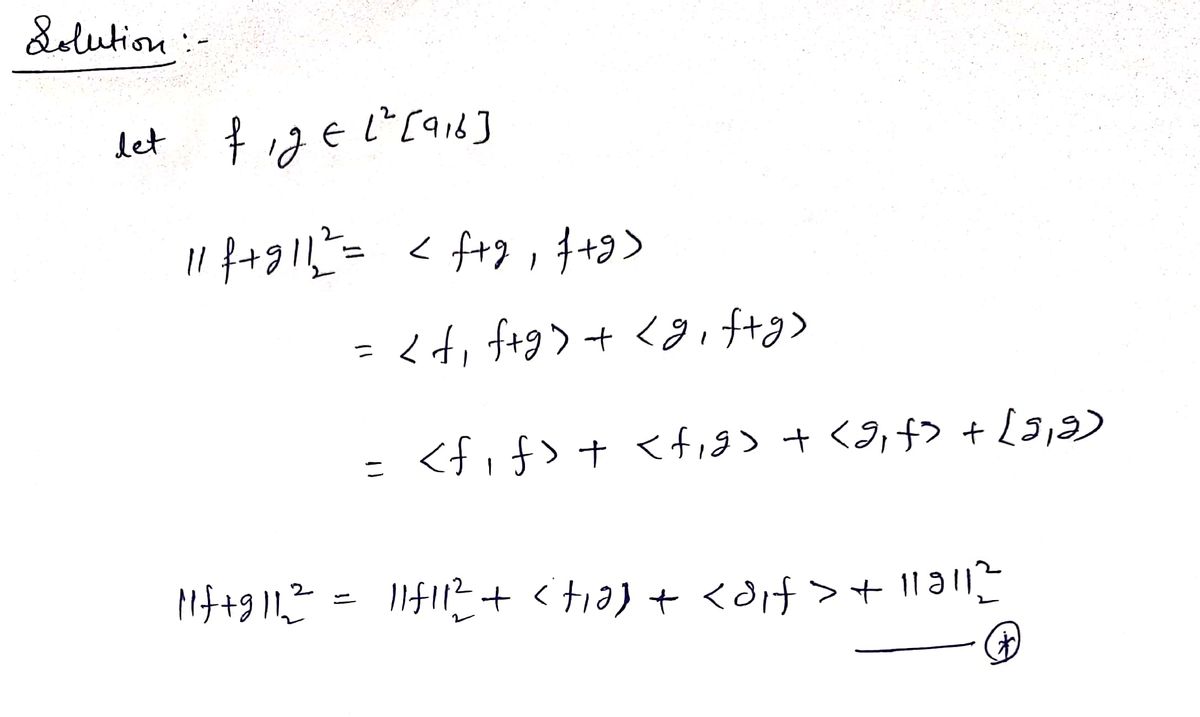 Solution :-
let f, g ∈ L²[a,b]
||f+g||₂² = < f+g, f+g>
= <f, f+g> + <g, f+g>
= <f, f> + <f,g> + <g, f> + <g,g>
||f+g||₂² = ||f||₂² + <f,g> + <g,f> + ||g||₂²
—— ⊛